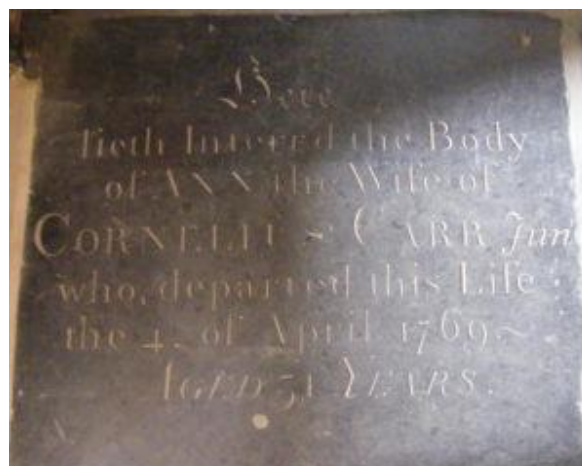 Here
lieth Interr'd the Body
of ANN the Wife of
CORNELIUS CARR Jun
who, departed this Life
the 4. of April 1769~
AGED 51 YEARS.